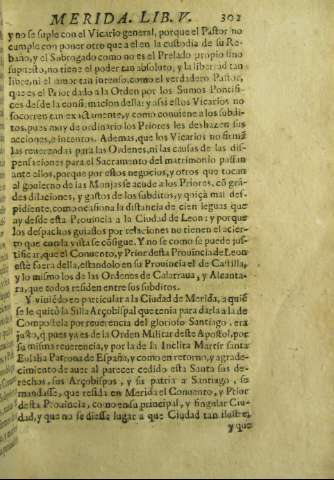 MERIDA. LIB. V. 301
y no se suple con el Vicario general, porque el Pastor no
cumple con poner otro que a el en la custodia de su Re-
baño, y el Subrogado como no es el Prelado propio sino
supuesto, no tiene el poder tan absoluto, y la libertad tan
libre, ni el amor tan intenso, como el verdadero Pastor,
que es el Prior dado a la Orden por los Sumos Pontifi-
ces desde la confirmacion della: y assi estos Vicarios no
socorren tan exactamente, y como conuiene a los subdi-
tos, pues muy de ordinario los Priores les deshazen sus
acciones, e intentos. Ademas, que los Vicarios no
las reuerendas para las Ordenes, ni las causas de las dis-
pensaciones para el Sacramento del matrimonio passan
ante ellos, porque por estos negocios, y otros que tocan
al gouierno de las Monjas se acude a los Priores, cõ grã-
des dilaciones, y gastos de los subditos, y quiça mal des-
pidiente, como ocasiona la distancia de cien leguas que
ay desde esta Prouincia a la Ciudad de Leon: y porque
los despachos guiados por relaciones no tienen el acier-
to que con la vista se cõsigue. Y no se como se puede jus-
tificar, que el Conuento, y Prior desta Prouincia de Leon
estè fuera della, estando lo en su Prouincia el de Castilla,
y lo mismo los de las Ordenes de Calatraua, y Alcanta-
ra, que todos residen entre sus subditos.
Y viniẽdo en particular a la Ciudad de Merida, a quiẽ
se le quitò la Silla Arçobispal que tenia para darla a la de
Compostela por reuerencia del glorioso Santiago, era
justo, q̃ pues ya es de la Orden Militar deste Apostol, por
su misma reuerencia, y por la de la Inclita Martir santa
Eulalia Patrona de España, y como en retorno, y agrade-
cimiento de auer al parecer cedido esta Santa sus de-
rechos, sus Arçobispos, y su patria a Santiago, se
mandasse, que resida en Merida el Conuento, y Prior
desta Prouincia, como en su principal, y singular Ciu-
dad, y que no se diesse lugar a que Ciudad tan ilustre,
y que